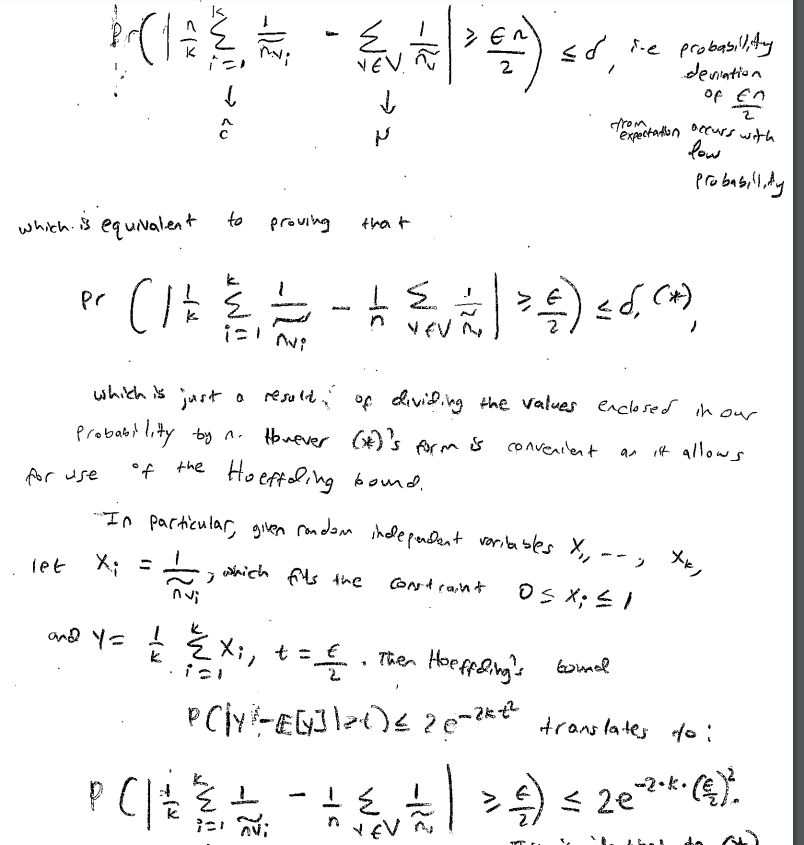 Pr(| n/k Σ_{i=1}^{k} 1/ñ_{v_i} - Σ_{v∈V} 1/ñ_v | ≥ εn/2) ≤ δ, i.e probability
deviation
of εn/2
from expectation occurs with
low
probability
↓ ↓
ĉ μ
which is equivalent to proving that
Pr (| 1/k Σ_{i=1}^{k} 1/ñ_{v_i} - 1/n Σ_{v∈V} 1/ñ_v | ≥ ε/2) ≤ δ, (*),
which is just a result of dividing the values enclosed in our
probability by n. However (*)'s form is convenient as it allows
for use of the Hoeffding bound.
In particular, given random independent variables X_1, ---, X_k,
let X_i = 1/ñ_{v_i}, which fits the constraint 0 ≤ X_i ≤ 1
and Y = 1/k Σ_{i=1}^{k} X_i, t = ε/2. Then Hoeffding's bound
P(|Y - E[Y]| ≥ t) ≤ 2e^{-2kt^2} translates to:
P(| 1/k Σ_{i=1}^{k} 1/ñ_{v_i} - 1/n Σ_{v∈V} 1/ñ_v | ≥ ε/2) ≤ 2e^{-2·k·(ε/2)^2}.